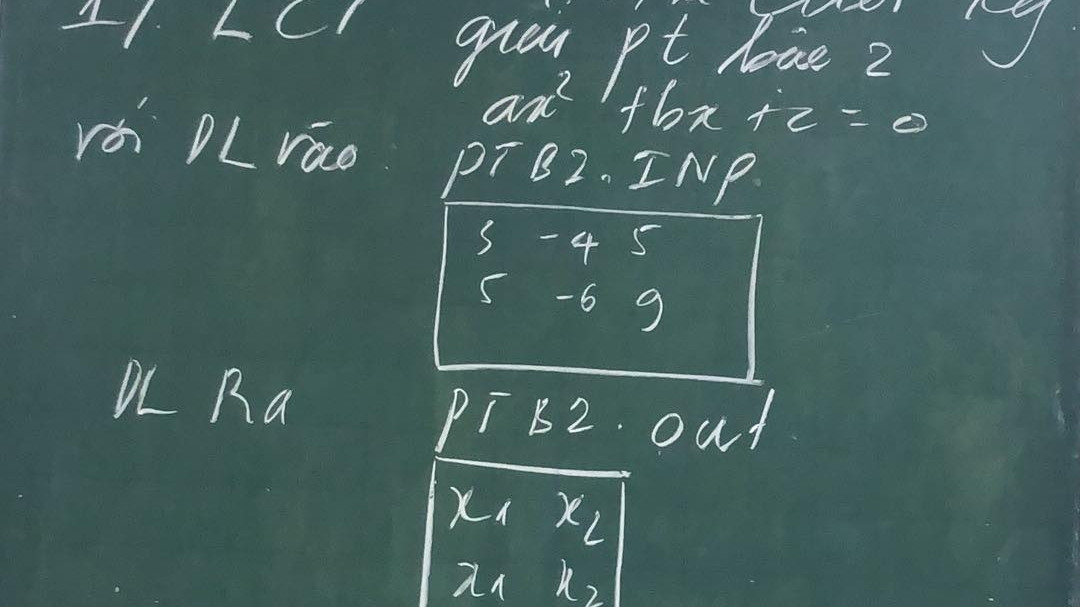 1/. LCT
giải pt bậc 2
ax² + bx + c = 0
với DL vào PTB2.INP.
3 -4 5
5 -6 9
DL Ra PTB2.out
x1 x2
x1 x2